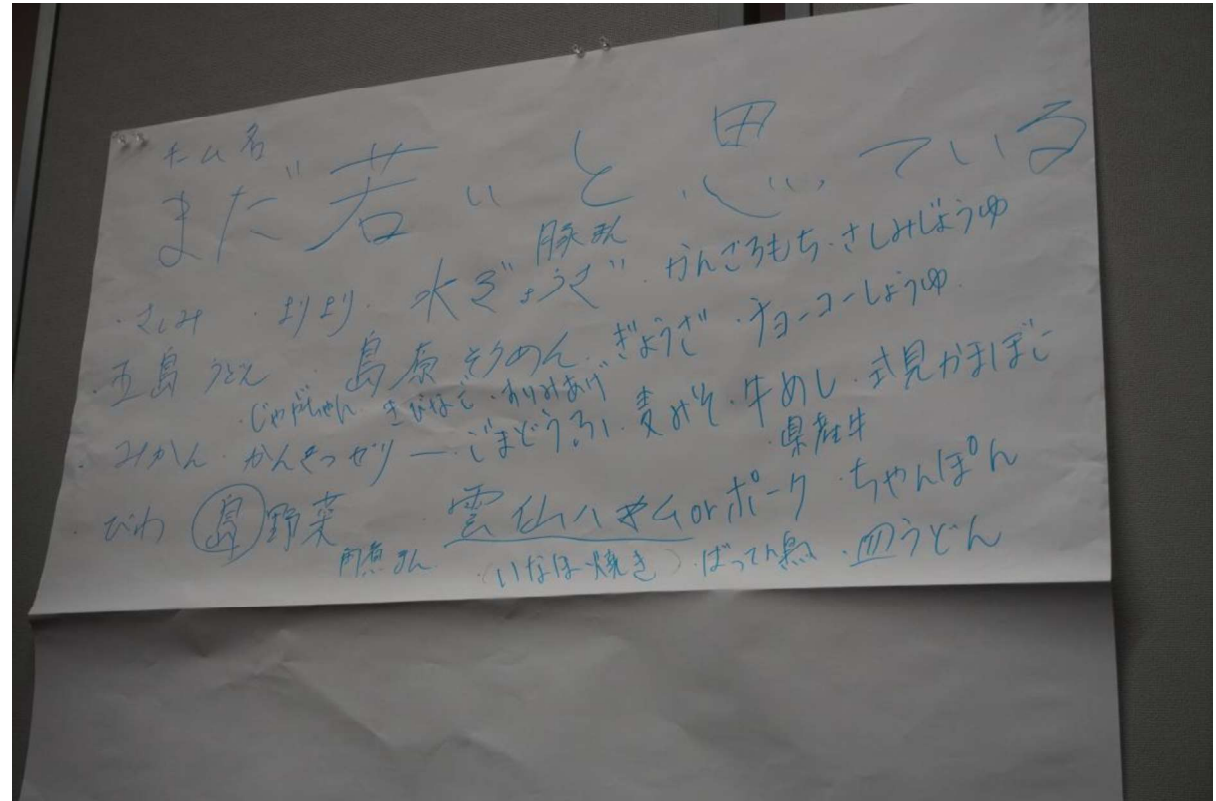 チーム名
まだ若いと思っている
豚まん
・さしみ ・よりより・水ぎょうざ ・かんころもち・さしみじょうゆ
・五島うどん ・島原そうめん・ぎょうざ・チョーコーしょうゆ
・じゃがちゃん きびなご・ありみあげ
・みかん・かんきつゼリー・ごまどうふ・麦みそ・牛めし・式見かまぼこ
・県産牛
びわ 島野菜 雲仙ハムorポーク・ちゃんぽん
角煮まん ・(いなほ焼き)・ばってん鶏・皿うどん